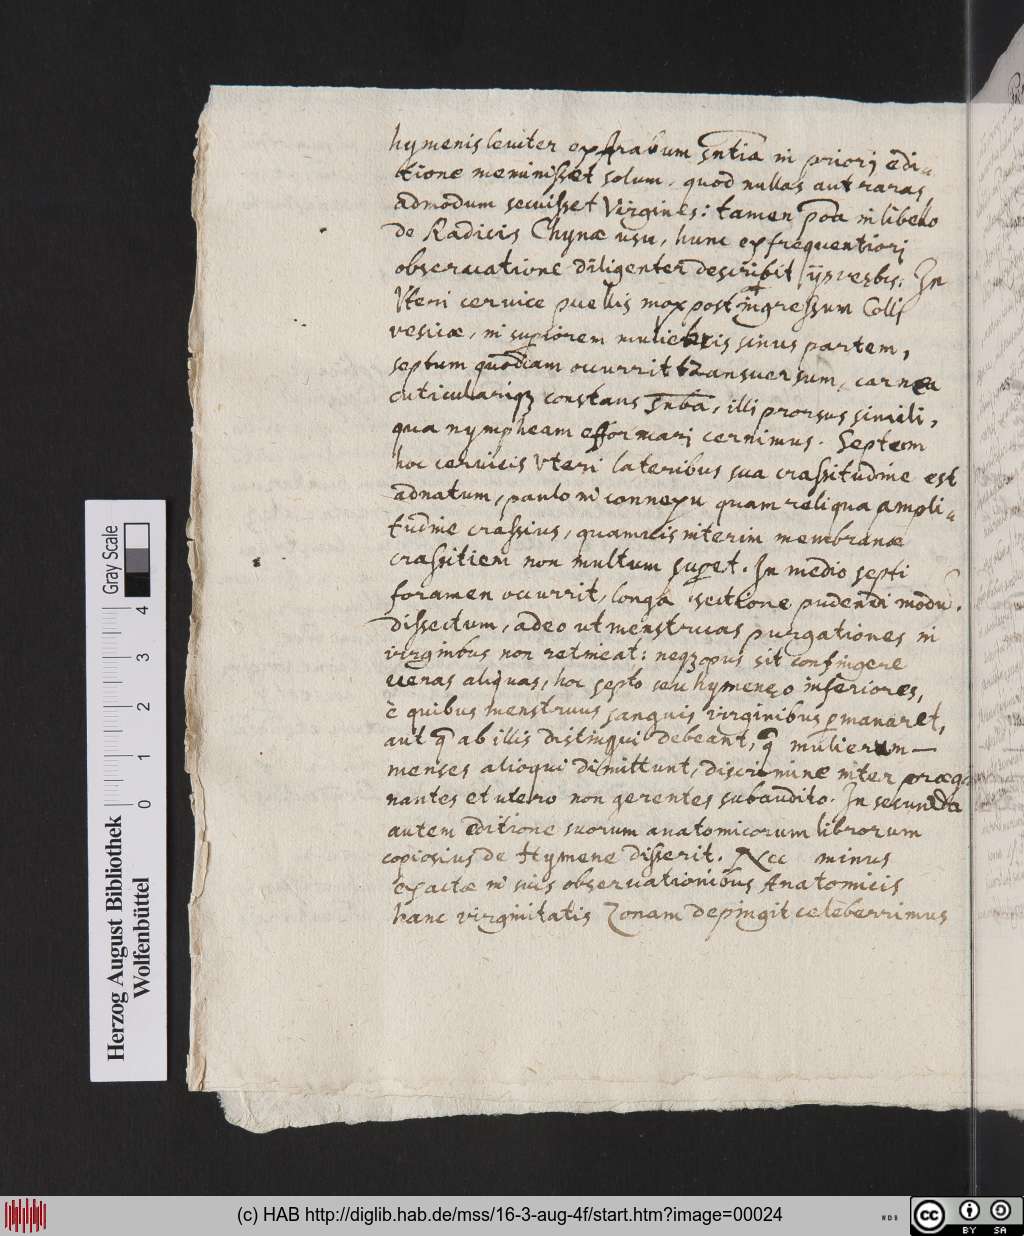 hymenis leuiter ex Arabum sntia in priorj edi-
tione meminisset solum, quod nullas aut raras
admodum secuisset Virgines: tamen poa in libello
De Radicis Chynæ usu, hunc ex frequentiorj
obseruatione diligenter describit ijs verbis. In
Vteri ceruice puellis mox post ingressum Colli
vesicæ, in supiorem muliebris sinus partem,
septum quoddam occurrit transuersum, carnea
cuticulariq; constans snba, illi prorsus simili,
qua nympheam efformarj cernimus. Septum
hoc ceruicis Vteri lateribus sua crassitudine est
adnatum, paulo in connexu quam reliqua ampli-
tudine crassius, quamuis interim membranæ
crassitiem non multum supet. In medio septi
foramen occurrit, longa sectione pudendi modu.
dissectum, adeo ut menstruas purgationes in
virginibus non retineat: neq; opus sit confingere
uenas aliquas, hoc septo seu hymenæo inferiores,
è quibus menstruus sanguis virginibus pmanaret,
aut q ab illis distingui debeant, q mulierum
menses alioqui dimittunt, discrimine inter præg-
nantes et utero non gerentes subaudito. In secunda
autem Editione suorum anatomicorum librorum
copiosius de Hymene disserit. Nec minus
exactæ in suis obseruationibus Anatomicis
hanc virginitatis Zonam depingit celeberrimus
Gray Scale
0 1 2 3 4
Herzog August Bibliothek
Wolfenbüttel
(c) HAB http://diglib.hab.de/mss/16-3-aug-4f/start.htm?image=00024
WDB
cc BY SA